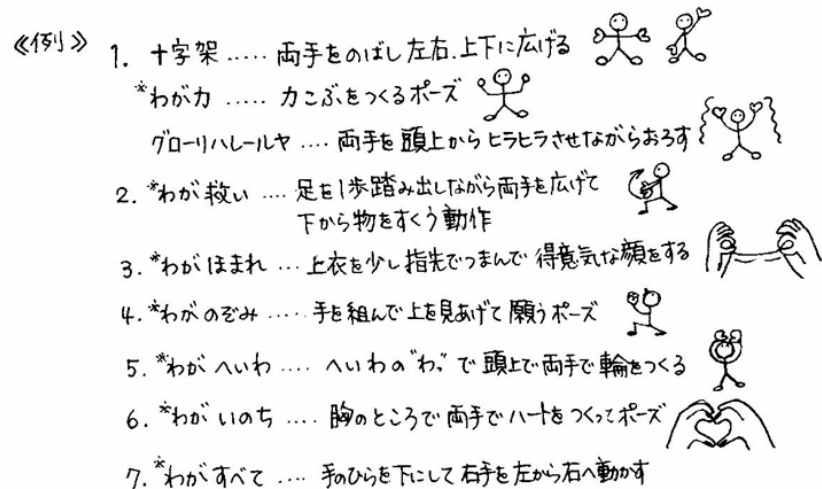 ≪例≫ 1. 十字架 ..... 両手をのばし左右.上下に広げる
*わが力 ..... 力こぶをつくるポーズ
グローリハレールヤ .... 両手を頭上からヒラヒラさせながらおろす
2. *わが救い .... 足を1歩踏み出しながら両手を広げて
下から物をすくう動作
3. *わがほまれ ... 上衣を少し指先でつまんで得意気な顔をする
4. *わがのぞみ ..... 手を組んで上を見あげて願うポーズ
5. *わがへいわ .... へいわの"わ"で頭上で両手で輪をつくる
6. *わがいのち .... 胸のところで両手でハートをつくってポーズ
7. *わがすべて .... 手のひらを下にして右手を左から右へ動かす